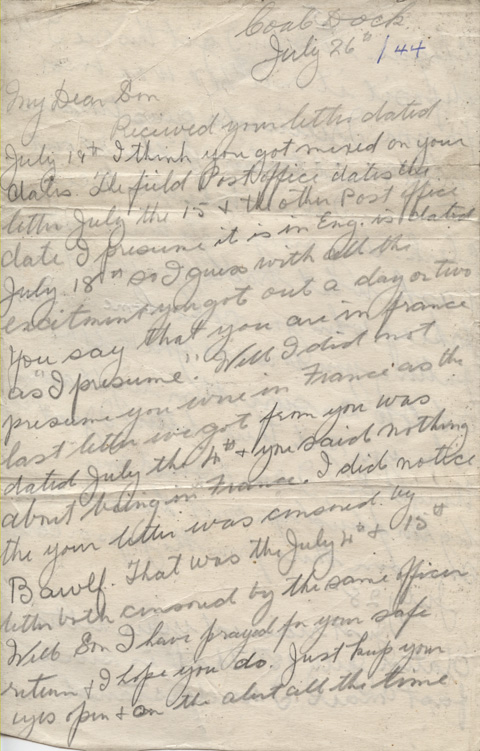 Coal Dock
July 26th /44
My Dear Son
Recieved your letter dated
July 19th I think you got mixed on your
dates. The field Post office dates the
letter July the 15 + the other Post office
date I presume it is in Eng. is dated
July 18th so I guess with all the
excitment you got out a day or two
You say that you are in France
as "I presume". Well I did not
presume you were in France as the
last letter we got from you was
dated July the 4th + you said nothing
about being in France. I did notice
the your letter was censored by
Bawlf. That was the July 4th + 15th
letter both censored by the same officer
Well Son I have prayed for your safe
return + I hope you do. Just keep your
eyes open + on the alert all the time.